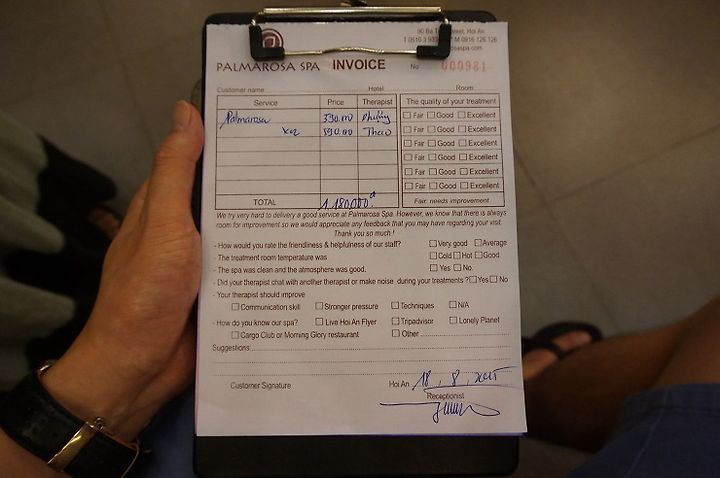 90 Ba Street, Hoi An
T 0510 3 M 0916 126 126
PALMAROSA SPA INVOICE No 000981
Customer name Hotel Room
Service Price Therapist The quality of your treatment
Palmarosa Fair Good Excellent
x2 590.000 Thao Fair Good Excellent
Fair Good Excellent
Fair Good Excellent
Fair Good Excellent
Fair Good Excellent
TOTAL 1.180.000đ Fair: needs improvement
We try very hard to delivery a good service at Palmarosa Spa. However, we know that there is always
room for improvement so we would appreciate any feedback that you may have regarding your visit.
Thank you so much !
- How would you rate the friendliness & helpfulness of our staff? Very good Average
- The treatment room temperature was Cold Hot Good
- The spa was clean and the atmosphere was good. Yes No.
- Did your therapist chat with another therapist or make noise during your treatments ? Yes No
- Your therapist should improve
Communication skill Stronger pressure Techniques N/A
- How do you know our spa? Live Hoi An Flyer Tripadvisor Lonely Planet
Cargo Club or Morning Glory restaurant Other
Suggestions:
Customer Signature Hoi An 18, 8, 2015
Receptionist